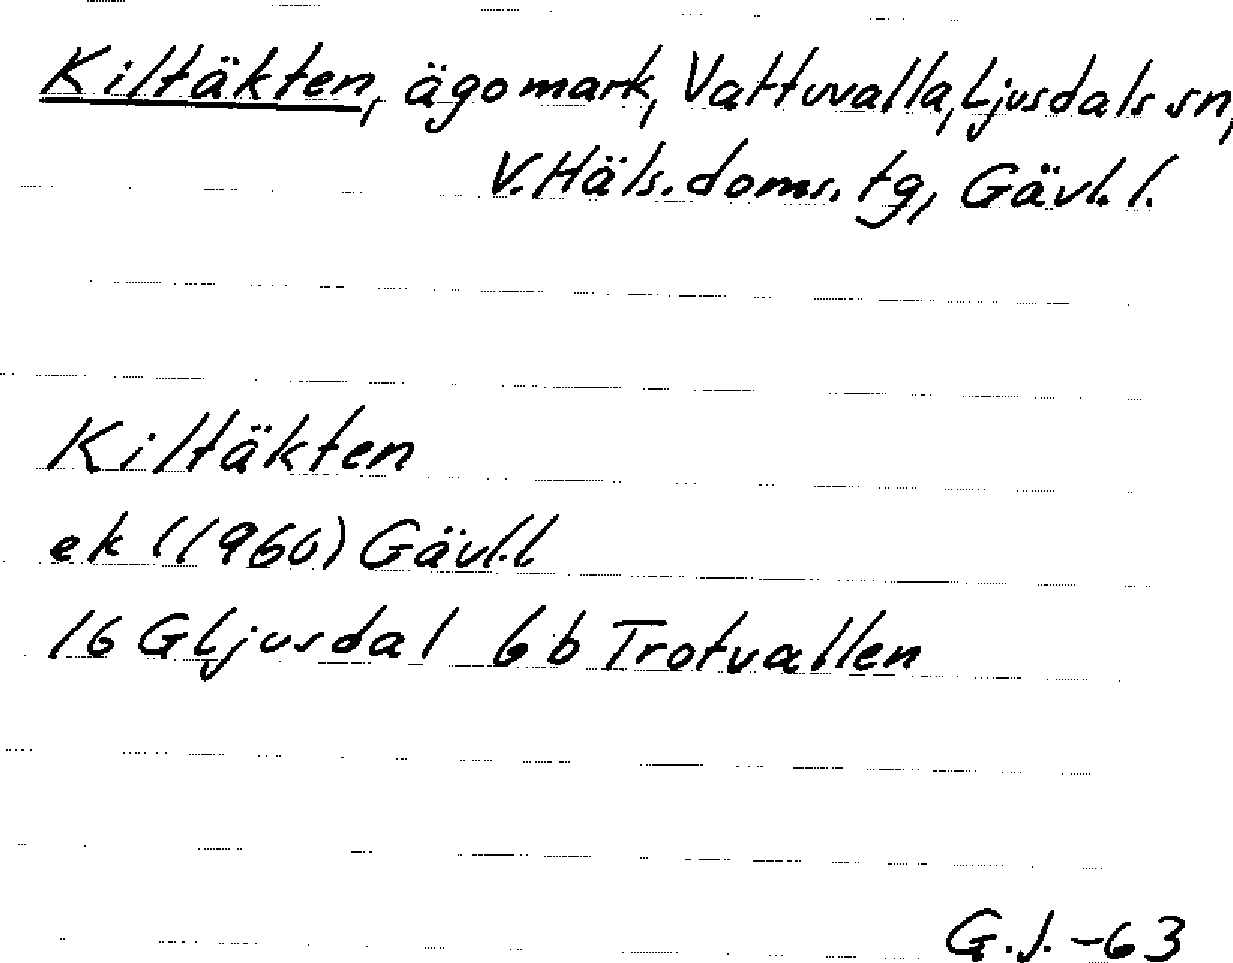 Kiltäkten, ägomark, Vattuvalla, Ljusdals sn,
V. Häls. doms. tg, Gävl. l.
Kiltäkten
ek (1960) Gävl.l
16 G Ljusdal 6b Trotvallen
G.J. -63